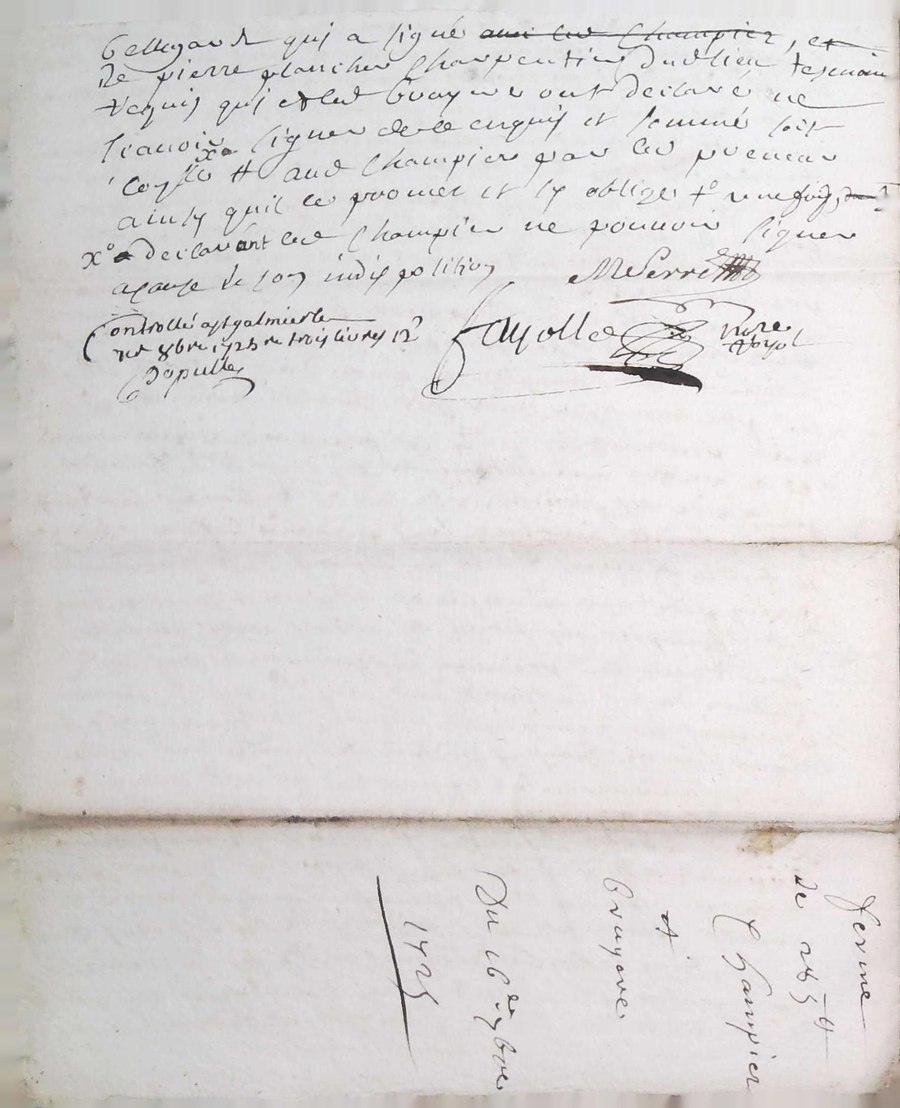 bellegarde qui a signé avec led Champier, et
de pierre plancher Charpentier dudlieu tesmoins
requis qui et led bruyere ont declaré ne
scavoir signer de ce enquis et sommé soit
aud Champier par led preneur
ainsy quil le promet et sy oblige
xo declarant led Champier ne pouvoir signer
a cause de son indisposition
MePerret
Controllé a st galmier le
8bre 1725 re trois livres 12 s
Dupuis
Fayolle nore Royal
ferme
de 28
Champier
et
bruyere
Du 16e 7bre
1725